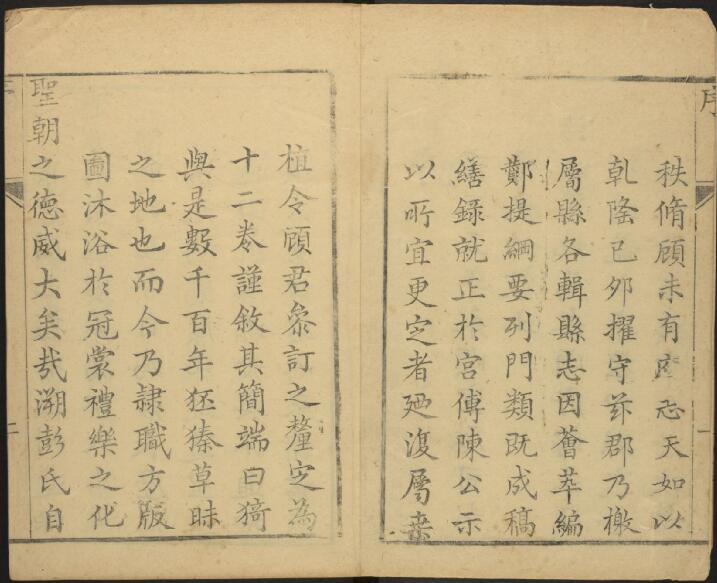 序
秩脩顧未有府志天如以
乾隆己夘擢守茲郡乃檄
屬縣各輯縣志因薈萃編
鄭提綱要列門類既成稿
繕錄就正於宮傅陳公示
以所宜更定者廼復屬桒
植令顧君叅訂之釐定為
十二卷謹敘其簡端曰猗
與是數千百年狉獉草昧
之地也而今乃隷職方版
圖沐浴於冠裳禮樂之化
聖朝之德威大矣哉溯彭氏自